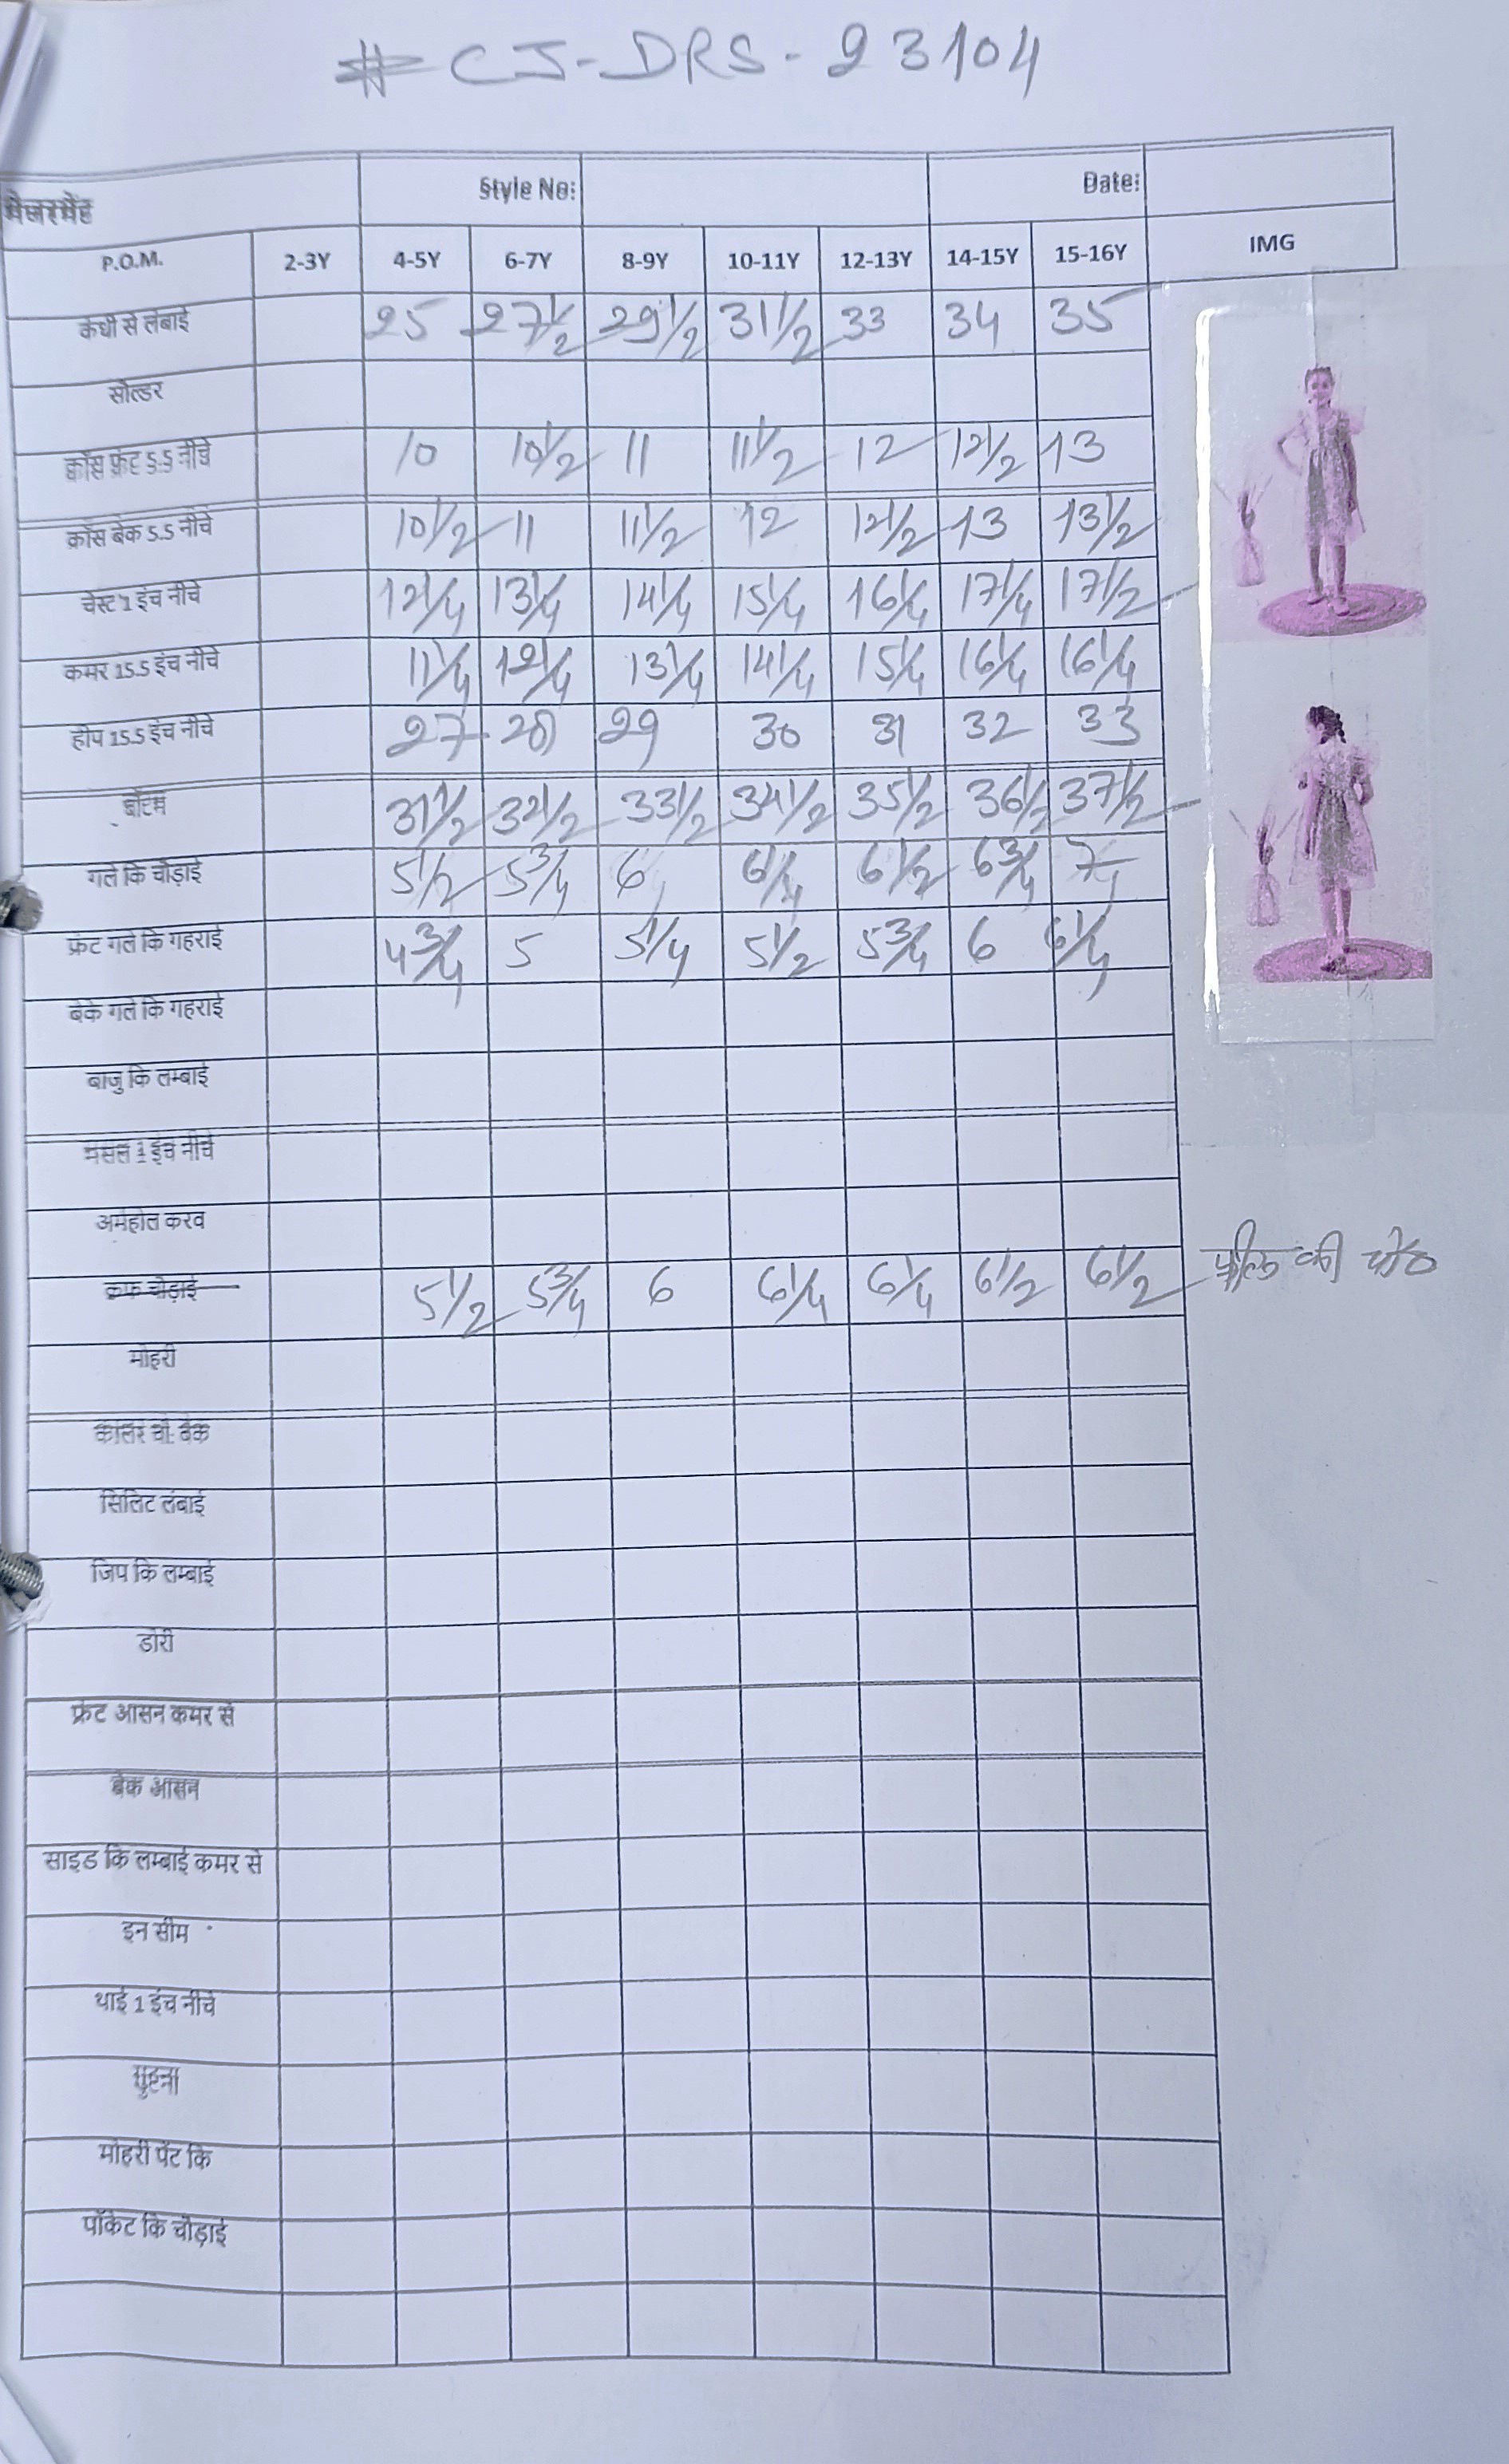 # CJ-DRS-23104
मेजरमेंट Style No: Date:
P.O.M. 2-3Y 4-5Y 6-7Y 8-9Y 10-11Y 12-13Y 14-15Y 15-16Y IMG
कंधी से लंबाई 25 27 1/2 29 1/2 31 1/2 33 34 35
सोल्डर
क्रॉस फ्रंट 5.5 नीचे 10 10 1/2 11 11 1/2 12 12 1/2 13
क्रॉस बेक 5.5 नीचे 10 1/2 11 11 1/2 12 12 1/2 13 13 1/2
चेस्ट 1 इंच नीचे 12 1/4 13 1/4 14 1/4 15 1/4 16 1/4 17 1/4 17 1/2
कमर 15.5 इंच नीचे 11 1/4 12 1/4 13 1/4 14 1/4 15 1/4 16 1/4 16 1/4
हीप 15.5 इंच नीचे 27 28 29 30 31 32 33
बॉटम 31 1/2 32 1/2 33 1/2 34 1/2 35 1/2 36 1/2 37 1/2
गले कि चौड़ाई 5 1/2 5 3/4 6 6 1/4 6 1/2 6 3/4 7
फ्रंट गले कि गहराई 4 3/4 5 5 1/4 5 1/2 5 3/4 6 6 1/4
बेके गले कि गहराई
बाजु कि लम्बाई
मसल 1 इंच नीचे
अर्महोल करव
कफ चौड़ाई 5 1/2 5 3/4 6 6 1/4 6 1/4 6 1/2 6 1/2 की
मोहरी
कालर चौ. बेक
सिलिट लंबाई
जिप कि लम्बाई
डोरी
फ्रंट आसन कमर से
बेक आसन
साइड कि लम्बाई कमर से
इन सीम
थाई 1 इंच नीचे
घुटना
मोहरी पेंट कि
पॉकेट कि चौड़ाई